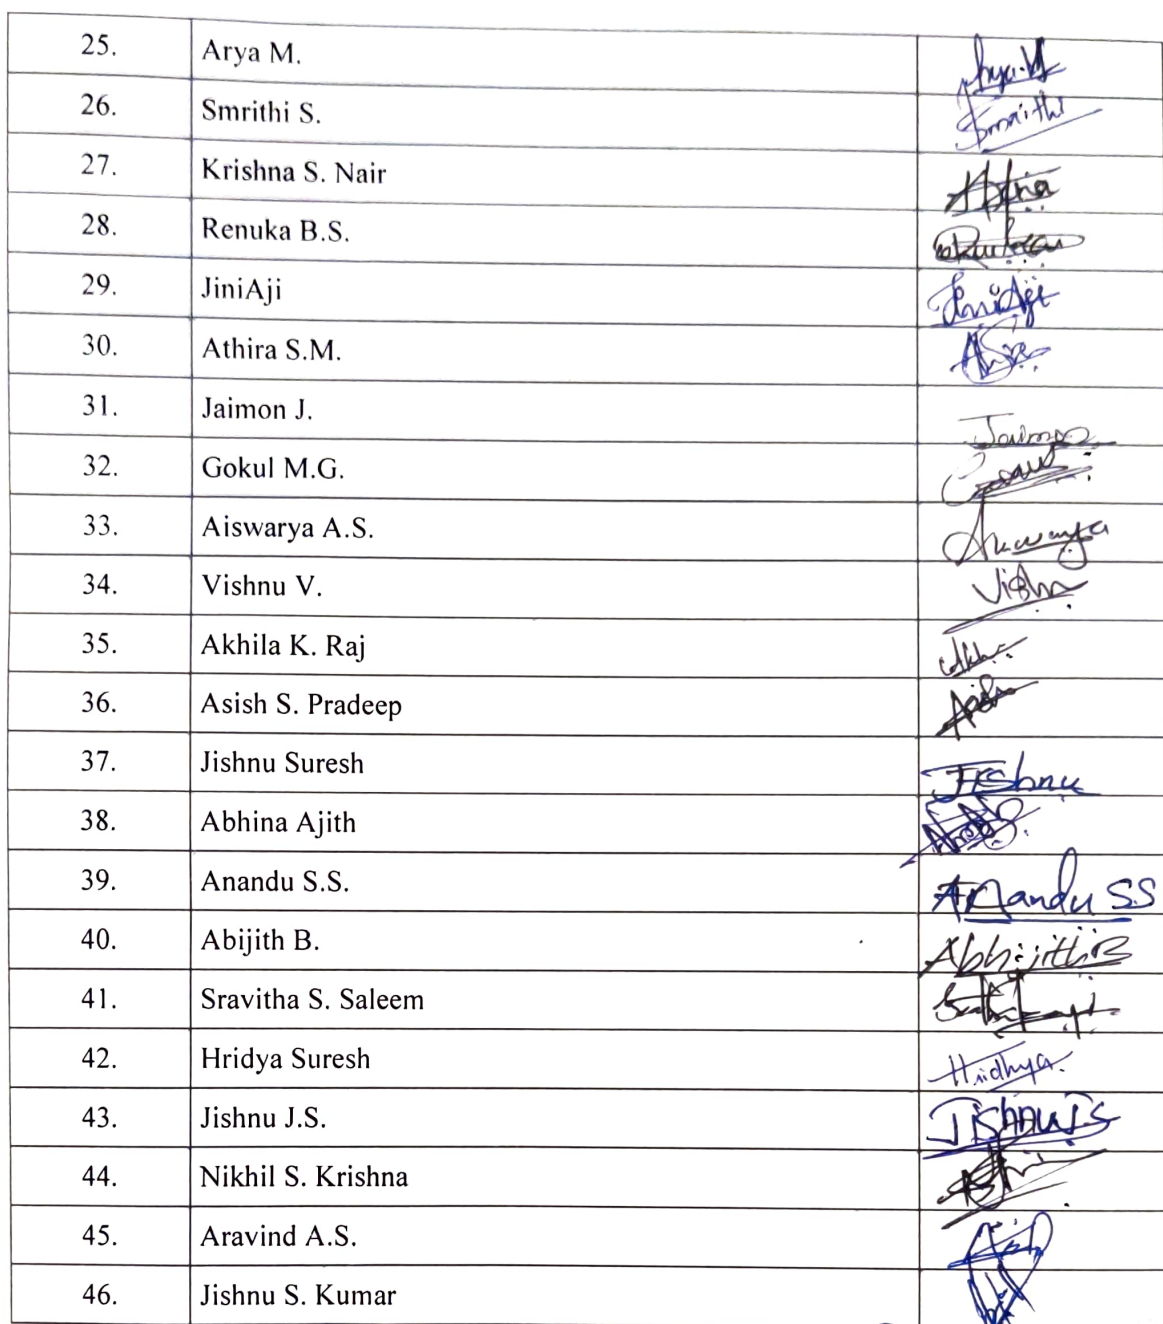 25. Arya M. Arya.M
26. Smrithi S. Smrithi
27. Krishna S. Nair
28. Renuka B.S.
29. JiniAji JiniAji
30. Athira S.M.
31. Jaimon J. Jaimon
32. Gokul M.G.
33. Aiswarya A.S.
34. Vishnu V. Vishnu
35. Akhila K. Raj
36. Asish S. Pradeep
37. Jishnu Suresh Jishnu
38. Abhina Ajith
39. Anandu S.S. Anandu S.S
40. Abijith B. Abhijith B
41. Sravitha S. Saleem
42. Hridya Suresh Hridhya
43. Jishnu J.S. Jishnu J.S
44. Nikhil S. Krishna
45. Aravind A.S.
46. Jishnu S. Kumar